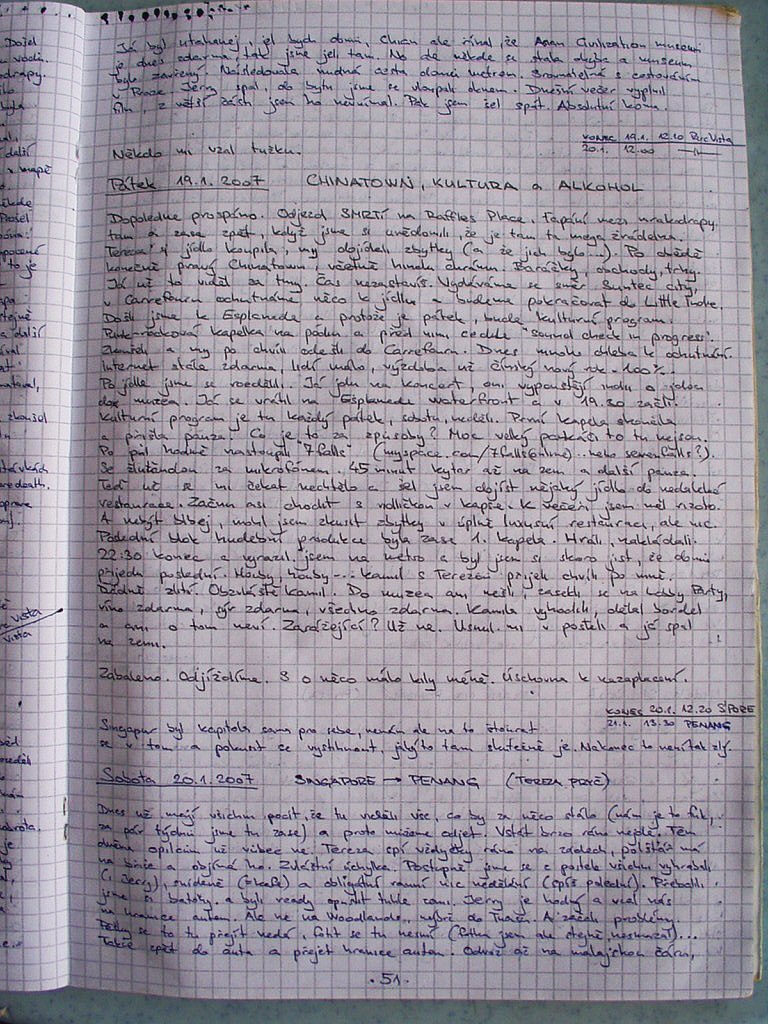 Já byl utahanej, jel bych domů, Chián ale říkal, že Asian Civilization museum
je dnes zdarma, tak jsme jeli tam. No ale někde se stala chyba a museum
bylo zavřený. Následovala nudná cesta domů metrem. Srovnatelná s cestováním
v Praze. Jerry spal, do bytu jsme se vloupali oknem. Dnešní večer vyplnil
film, z větší části jsem ho nevnímal. Pak jsem šel spát. Absolutní koma.
KONEC 19.1. 12.10 BuoVista
20.1. 12.00 —||—
Někdo mi vzal tužku.
Pátek 19.1.2007 CHINATOWN, KULTURA a ALKOHOL
Dopoledne prospáno. Odjezd SMRTÍ na Raffles Place. Ťapání mezi mrakodrapy
tam a zase zpět, když jsme si uvědomili, že je tam ta mega žrádelna.
Tereza si jídlo koupila, my dojídali zbytky (a že jich bylo...). Po obědě
konečně pravý Chinatown, včetně hindu chrámu. Baráčky, obchody, trhy.
Já už to viděl za tmy. Čas nezastavíš. Vydáváme se směr Suntec City,
v Carrefouru ochutnáme něco k jídlu a budeme pokračovat do Little Indie.
Došli jsme k Esplanade a protože je pátek, bude kulturní program.
Punk-rocková kapelka na pódiu a před nimi cedule "sound check in progress".
Zkoušeli a my po chvíli odešli do Carrefouru. Dnes mnoho chleba k ochutnání.
Internet stále zdarma, lidí málo, výzdoba už čínský nový rok - 100%.
Po jídle jsme se rozdělili. Já jdu na koncert, oni vypouštějí Indii a jdou
do muzea. Já se vrátil na Esplanade Waterfront a v 19.30 začli.
Kulturní program je tu každý pátek, sobotu, neděli. První kapela skončila
a přišla pauza. Co je to za způsoby? Moc velký pařkáči to tu nejsou.
Po půl hodině nastoupili "7 falls" (myspace.com/7fallsonline) ..nebo sevenfalls?).
Se šlutándou za mikrofónem. 45 minut kytar až na zem a další pauza.
Teď už se mi čekat nechtělo a šel jsem dojíst nějaký jídlo do nedaleké
restaurace. Začnu asi chodit s vidličkou v kapse. K večeři jsem měl rizoto.
A nebýt blbej, mohl jsem zkusit zbytky v úplně luxusní restauraci, ale nic.
Poslední blok hudební produkce byla zase 1. kapela. Hráli, nakládali.
22:30 konec a vyrazil jsem na metro a byl jsem si skoro jist, že domů
přijedu poslední. Houby, houby... Kamil s Terezou přijeli chvíli po mně.
Děsně zlití. Obzvláště Kamil. Do muzea ani nešli, zasekli se na Lobby Party,
víno zdarma, sýr zdarma, všechno zdarma. Kamila vyhodili, dělal bordel
a ani o tom neví. Zarážející? Už ne. Usnul mi v posteli a já spal
na zemi.
Zabaleno. Odjíždíme. S o něco málo kily méně. Úschovna k nezaplacení.
KONEC 20.1. 12.20 S'PORE
21.1. 13.30 PENANG
Singapur byl kapitola sama pro sebe, nemám ale na to šťourat
se v tom a pokusit se vystihnout, jaký to tam skutečně je. Nakonec to není tak zlý.
Sobota 20.1.2007 SINGAPORE → PENANG (TEREZA PRYČ)
Dnes už mají všichni pocit, že tu viděli vše, co by za něco stálo (nám je to fuk,
za pár týdnů jsme tu zase) a proto můžeme odjet. Vstát brzo ráno nejde. Těm
dvěma opilcům už vůbec ne. Tereza spí vždycky ráno na zádech, polštář má
na břiše a objímá ho. Zvláštní úchylka. Postupně jsme se z postele všichni vyhrabali
(i Jerry), snídaně (=kafe) a obligátní ranní nic nedělání (spíš polední). Přebalili
jsme si batohy a byli ready opustit tuhle zemi. Jerry je hodný a vzal nás
na hranice autem. Ale ne na Woodlands, nýbrž do Tuasu. A začali problémy.
Pěšky se to tu přejít nedá, fotit se tu nesmí (fotku jsem ale stejně nesmazal)...
Takže zpět do auta a přejet hranice autem. Odvoz až na malajskou čáru,
· 51 ·